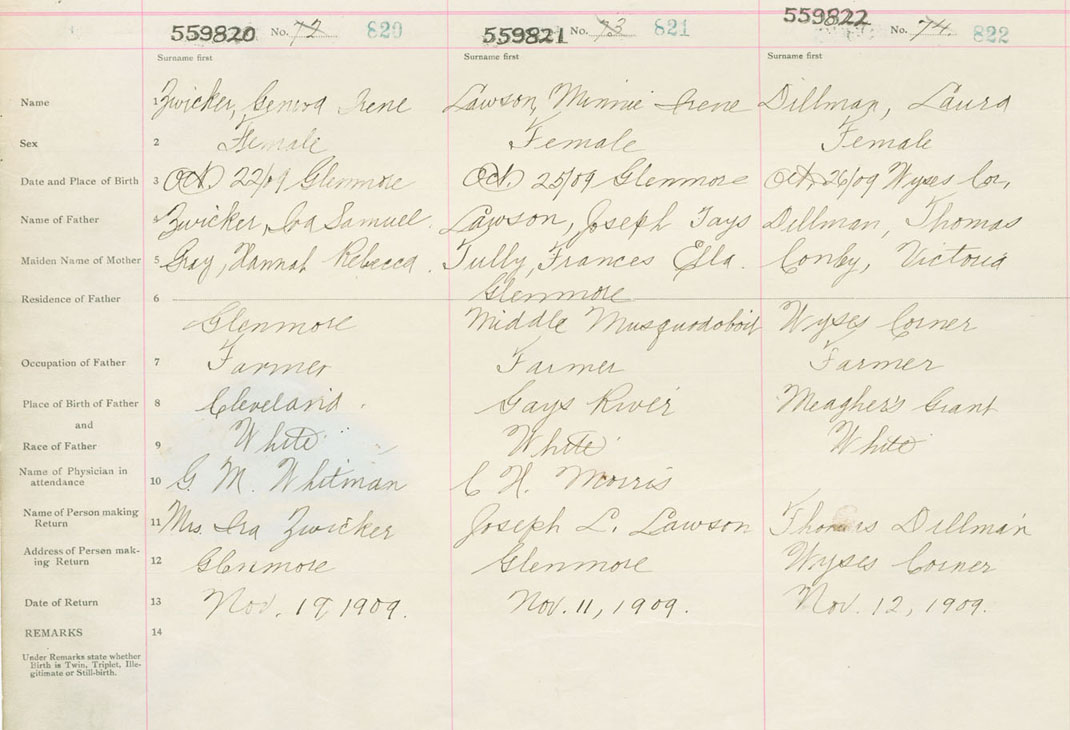 559820 No. 72 820 559821 No. 73 821 559822 No. 74 822
Surname first Surname first Surname first
Name 1 Zwicker, Geneva Irene Lawson, Minnie Irene Dillman, Laura
Sex 2 Female Female Female
Date and Place of Birth 3 Oct. 22/09 Glenmore Oct. 25/09 Glenmore Oct. 26/09 Wyses Cor.
Name of Father 4 Zwicker, Ira Samuel. Lawson, Joseph Tays Dillman, Thomas
Maiden Name of Mother 5 Gray, Hannah Rebecca. Tully, Frances Ella. Conby, Victoria
Residence of Father 6 Glenmore
Glenmore Middle Musquodoboit Wyses Corner
Occupation of Father 7 Farmer Farmer Farmer
Place of Birth of Father 8 Cleveland. Gays River Meaghers Grant
and
Race of Father 9 White White White
Name of Physician in
attendance 10 G. M. Whitman C H. Morris
Name of Person making
Return 11 Mrs. Ira Zwicker Joseph L. Lawson Thomas Dillman
Address of Person mak-
ing Return 12 Glenmore Glenmore Wyses Corner
Date of Return 13 Nov. 19, 1909. Nov. 11, 1909. Nov. 12, 1909.
REMARKS 14
Under Remarks state whether
Birth is Twin, Triplet, Ille-
gitimate or Still-birth.